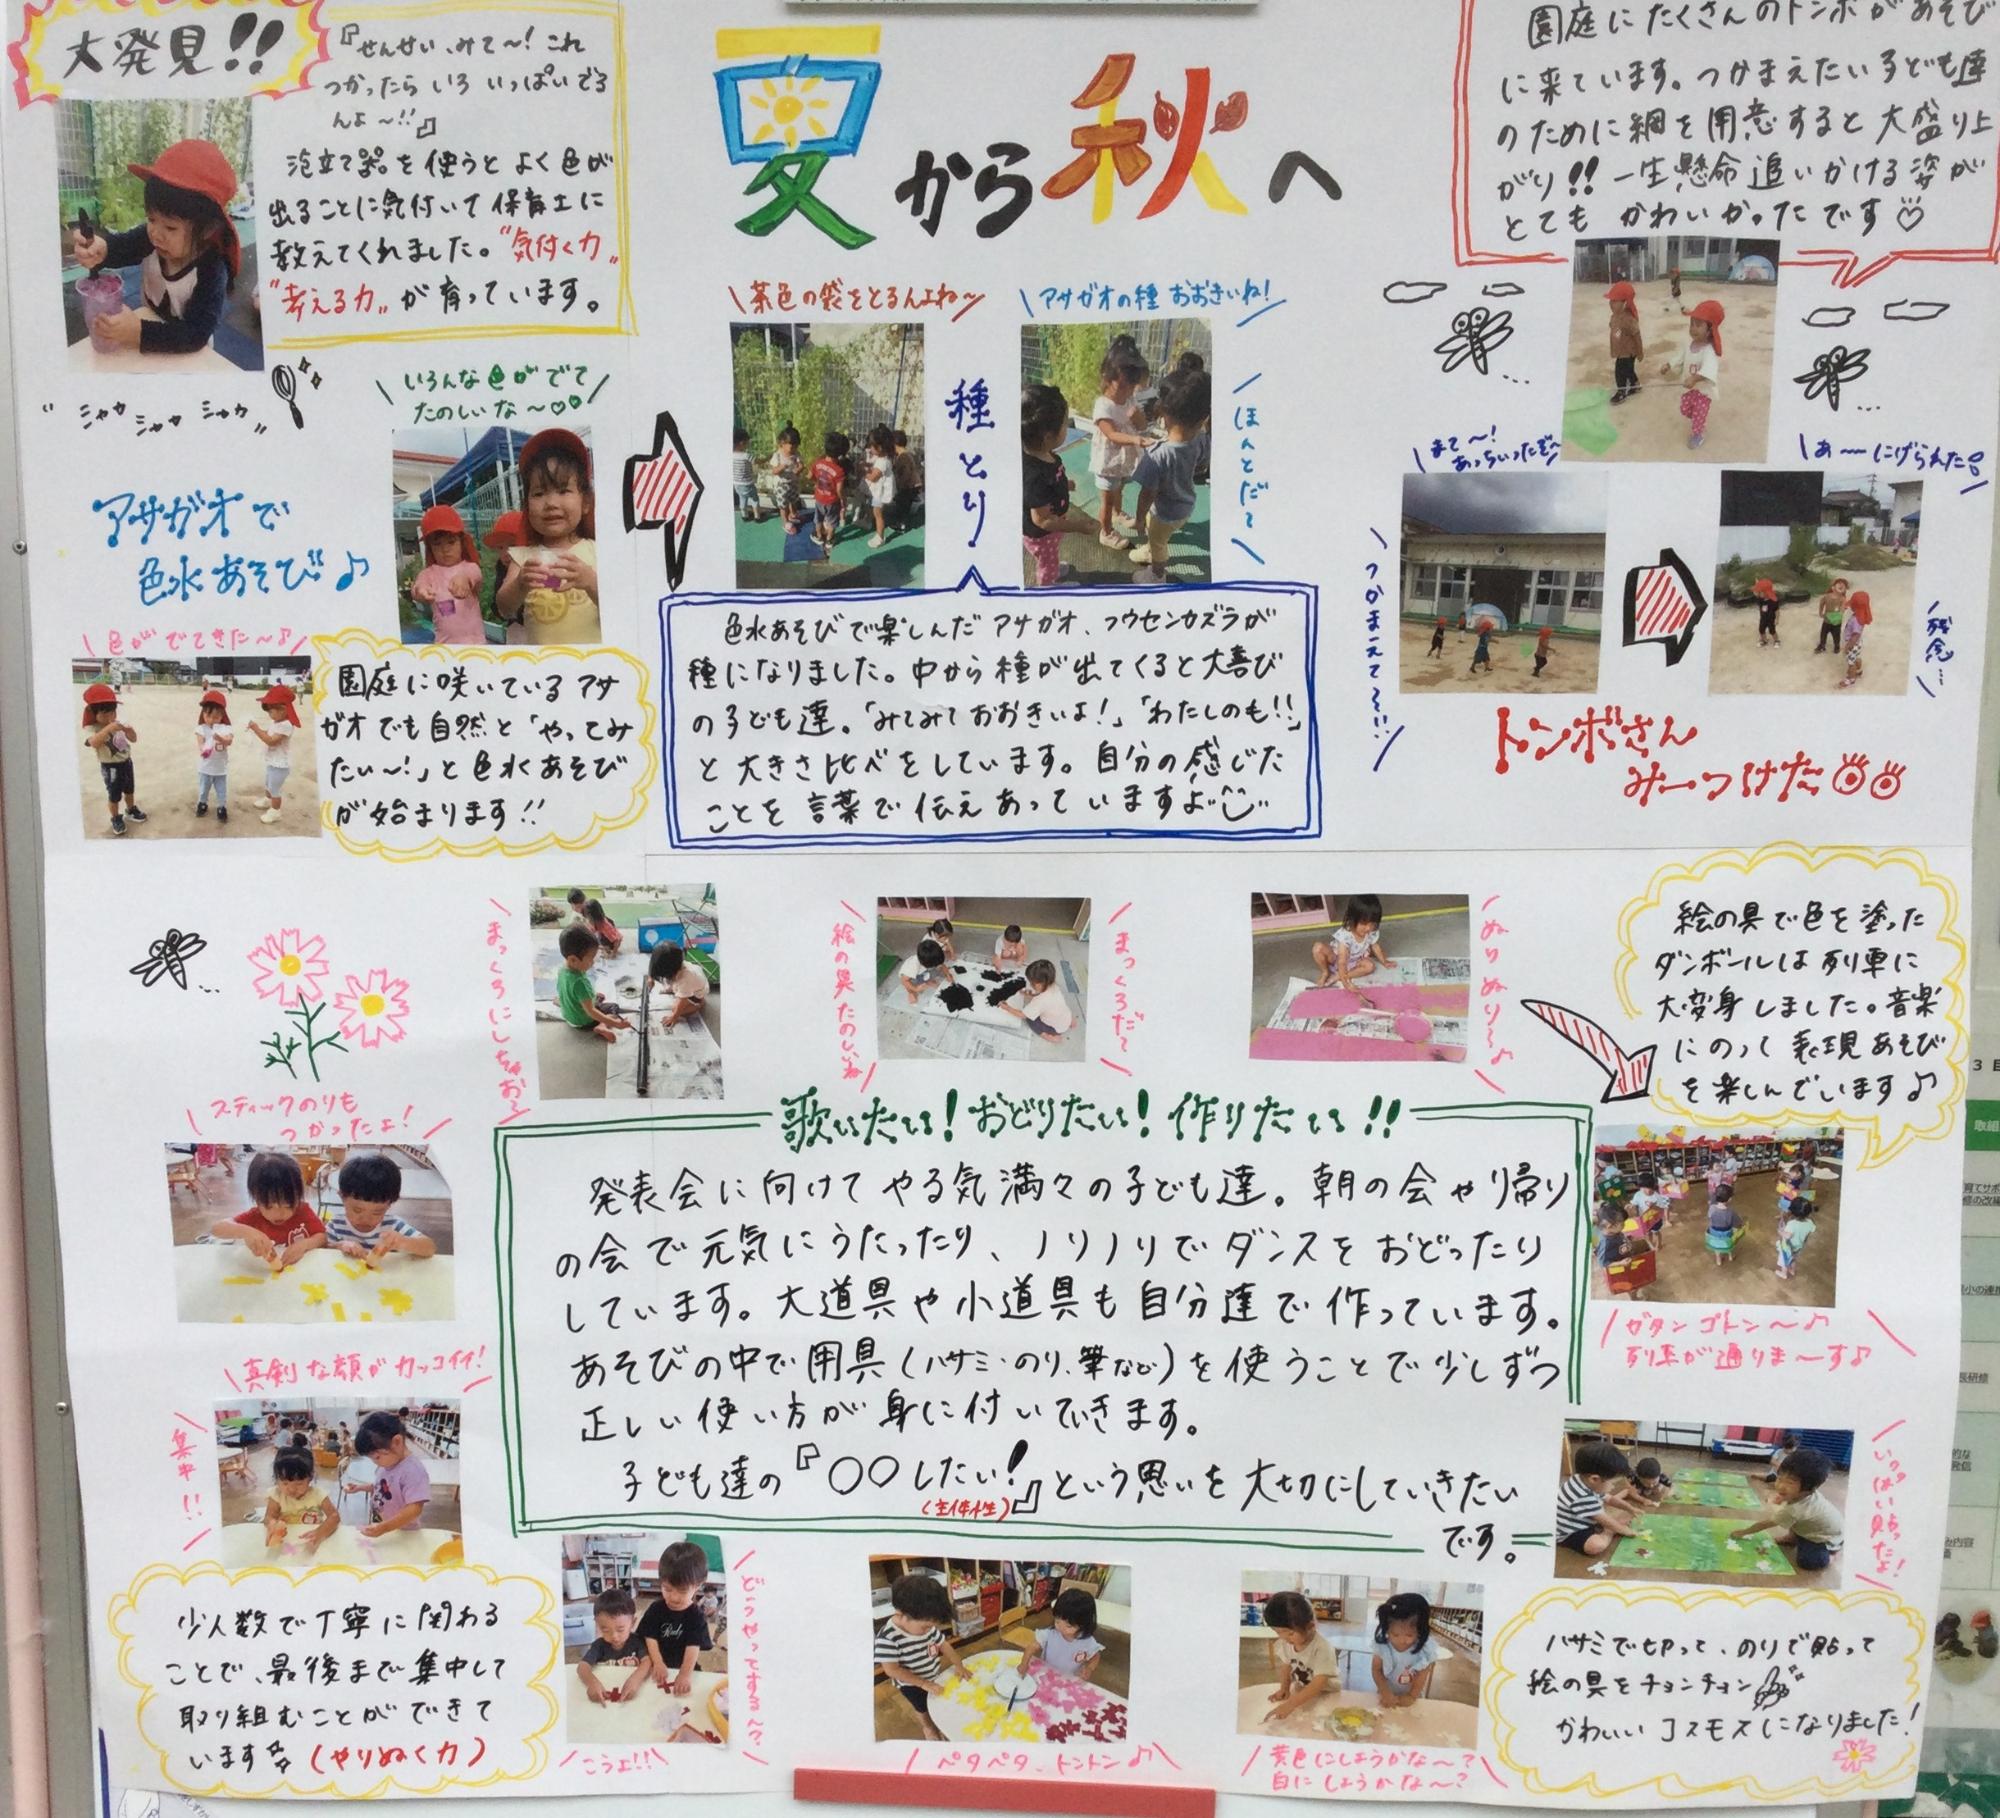 大発見!!
『せんせい、みて〜! これ
つかったら いろ いっぱいでる
んよ〜!!』
泡立て器を使うと よく色が
出ることに気付いて 保育士に
教えてくれました。"気付く力"
"考える力" が育っています。
"シャカ シャカ シャカ"
いろんな色がでて
たのしいな〜♡♡
アサガオで
色水あそび♪
色がでてきた〜♪
園庭に咲いているアサ
ガオでも自然と「やってみ
たい〜!」と色水あそび
が始まります!!
夏から秋へ
茶色の袋をとるんよね〜
アサガオの種 おおきいね!
種とり!
ほんとだ〜
色水あそびで楽しんだ アサガオ、フウセンカズラが
種になりました。中から種が出てくると大喜び
の子ども達。「みてみて おおきいよ!」「わたしのも!!」
と 大きさ比べをしています。自分の感じた
ことを 言葉で伝えあっていますよ
園庭にたくさんのトンボがあそび
に来ています。つかまえたい子ども達
のために網を用意すると大盛り上
がり!! 一生懸命追いかける姿が
とても かわいかったです♡
まて〜!
あっちいったぞ〜
あ〜 にげられた
つかまえて〜!!
残念…
トンボさん
みーつけた
まっくろにしちゃお〜
絵の具たのしいね
まっくろだ〜
ぬりぬり〜♪
絵の具で色を塗った
ダンボールは列車に
大変身しました。音楽
にのって 表現あそび
を楽しんでいます♪
スティックのりも
つかったよ!
歌いたい! おどりたい! 作りたい!!
発表会に向けて やる気満々の子ども達。朝の会や帰り
の会で元気にうたったり、ノリノリでダンスをおどったり
しています。大道具や小道具も自分達で作っています。
あそびの中で用具(ハサミ・のり、筆など)を使うことで少しずつ
正しい使い方が身に付いていきます。
子ども達の『〇〇したい!』という思いを大切にしていきたい
(主体性)
です。
ガタンゴトン〜♪
列車が通りま〜す♪
真剣な顔がカッコイイ!
集中!!
いっぱい貼ったよ!
少人数で丁寧に関わる
ことで、最後まで集中して
取り組むことができて
います (やりぬく力)
どうやってするん?
こうよ!!
ペタペタ、トントン♪
黄色にしようかな〜?
白にしようかな〜?
ハサミで切って、のりで貼って
絵の具をチョンチョン
かわいいコスモスになりました!